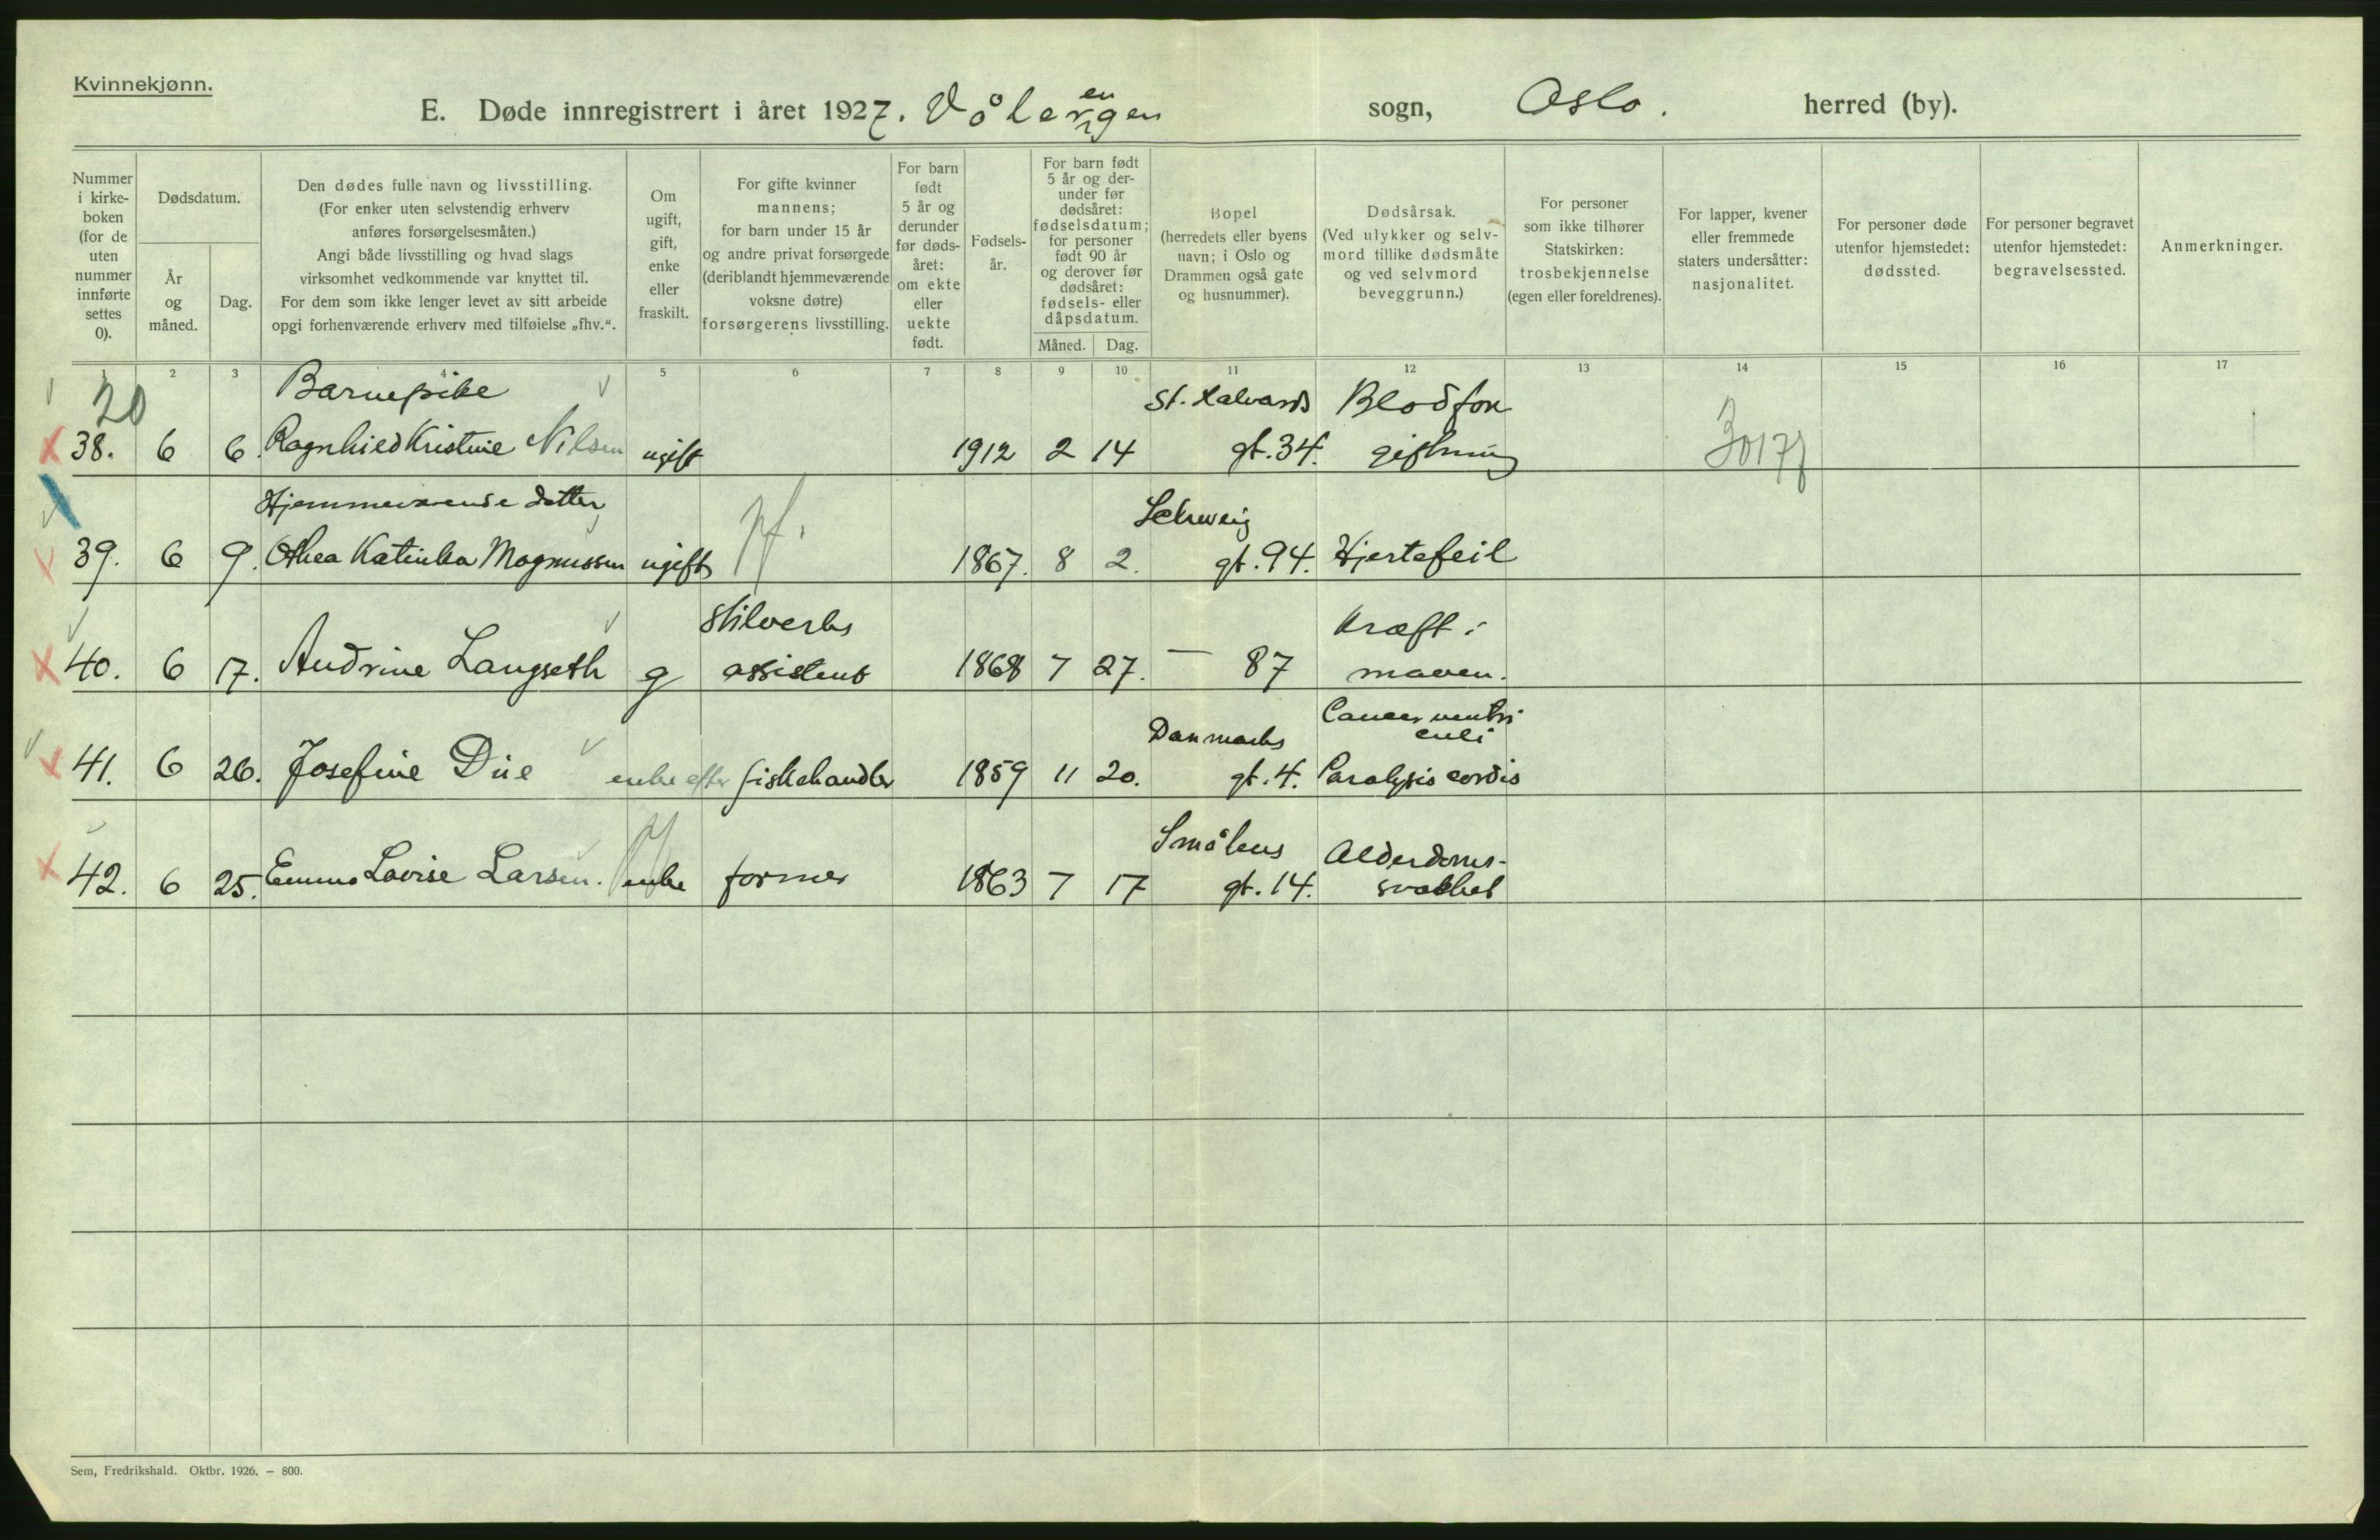 Kvinnekjønn.
E. Døde innregistrert i året 1927. Vålerengen sogn, Oslo. herred (by).
Nummer i kirkeboken (for de uten nummer innførte settes 0).
Dødsdatum.
År og måned.
Dag.
Den dødes fulle navn og livsstilling.
(For enker uten selvstendig erhverv
anføres forsørgelsesmåten.)
Angi både livsstilling og hvad slags
virksomhet vedkommende var knyttet til.
For dem som ikke lenger levet av sitt arbeide
opgi forhenværende erhverv med tilføielse „fhv.“.
Om ugift, gift, enke eller fraskilt.
For gifte kvinner
mannens;
for barn under 15 år
og andre privat forsørgede
(deriblandt hjemmeværende
voksne døtre)
forsørgerens livsstilling.
For barn født 5 år og derunder før dødsåret: om ekte eller uekte født.
Fødselsår.
For barn født
5 år og derunder før
dødsåret:
fødselsdatum;
for personer
født 90 år
og derover før
dødsåret:
fødsels- eller
dåpsdatum.
Måned. Dag.
Bopel
(herredets eller byens
navn; i Oslo og
Drammen også gate
og husnummer).
Dødsårsak.
(Ved ulykker og selvmord tillike dødsmåte
og ved selvmord
beveggrunn.)
For personer
som ikke tilhører
Statskirken:
trosbekjennelse
(egen eller foreldrenes).
For lapper, kvener
eller fremmede
staters undersåtter:
nasjonalitet.
For personer døde
utenfor hjemstedet:
dødssted.
For personer begravet
utenfor hjemstedet:
begravelsessted.
Anmerkninger.
1 2 3 4 5 6 7 8 9 10 11 12 13 14 15 16 17
20 Barnepike St. Halvards Blodfor
38. 6 6. Ragnhild Kristine Nilsen ugift 1912 2 14 gt. 34. giftning
Hjemmeværende datter pf. Schweig
39. 6 9. Othea Katinka Magnussen ugift 1867. 8 2. gt. 94. Hjertefeil
Skilverks Kræft i
40. 6 17. Andrine Langseth g assistent 1868 7 27. — 87 maven.
Danmarks Cancer ventri
culi
41. 6 26. Josefine Due enke efter fiskehandler 1859 11 20. gt. 4. Paralysis cordis
Smålens Alderdoms-
42. 6 25. Emma Lovise Larsen. enke former 1863 7 17 gt. 14. svakhet
Sem, Fredrikshald. Oktbr. 1926. — 800.